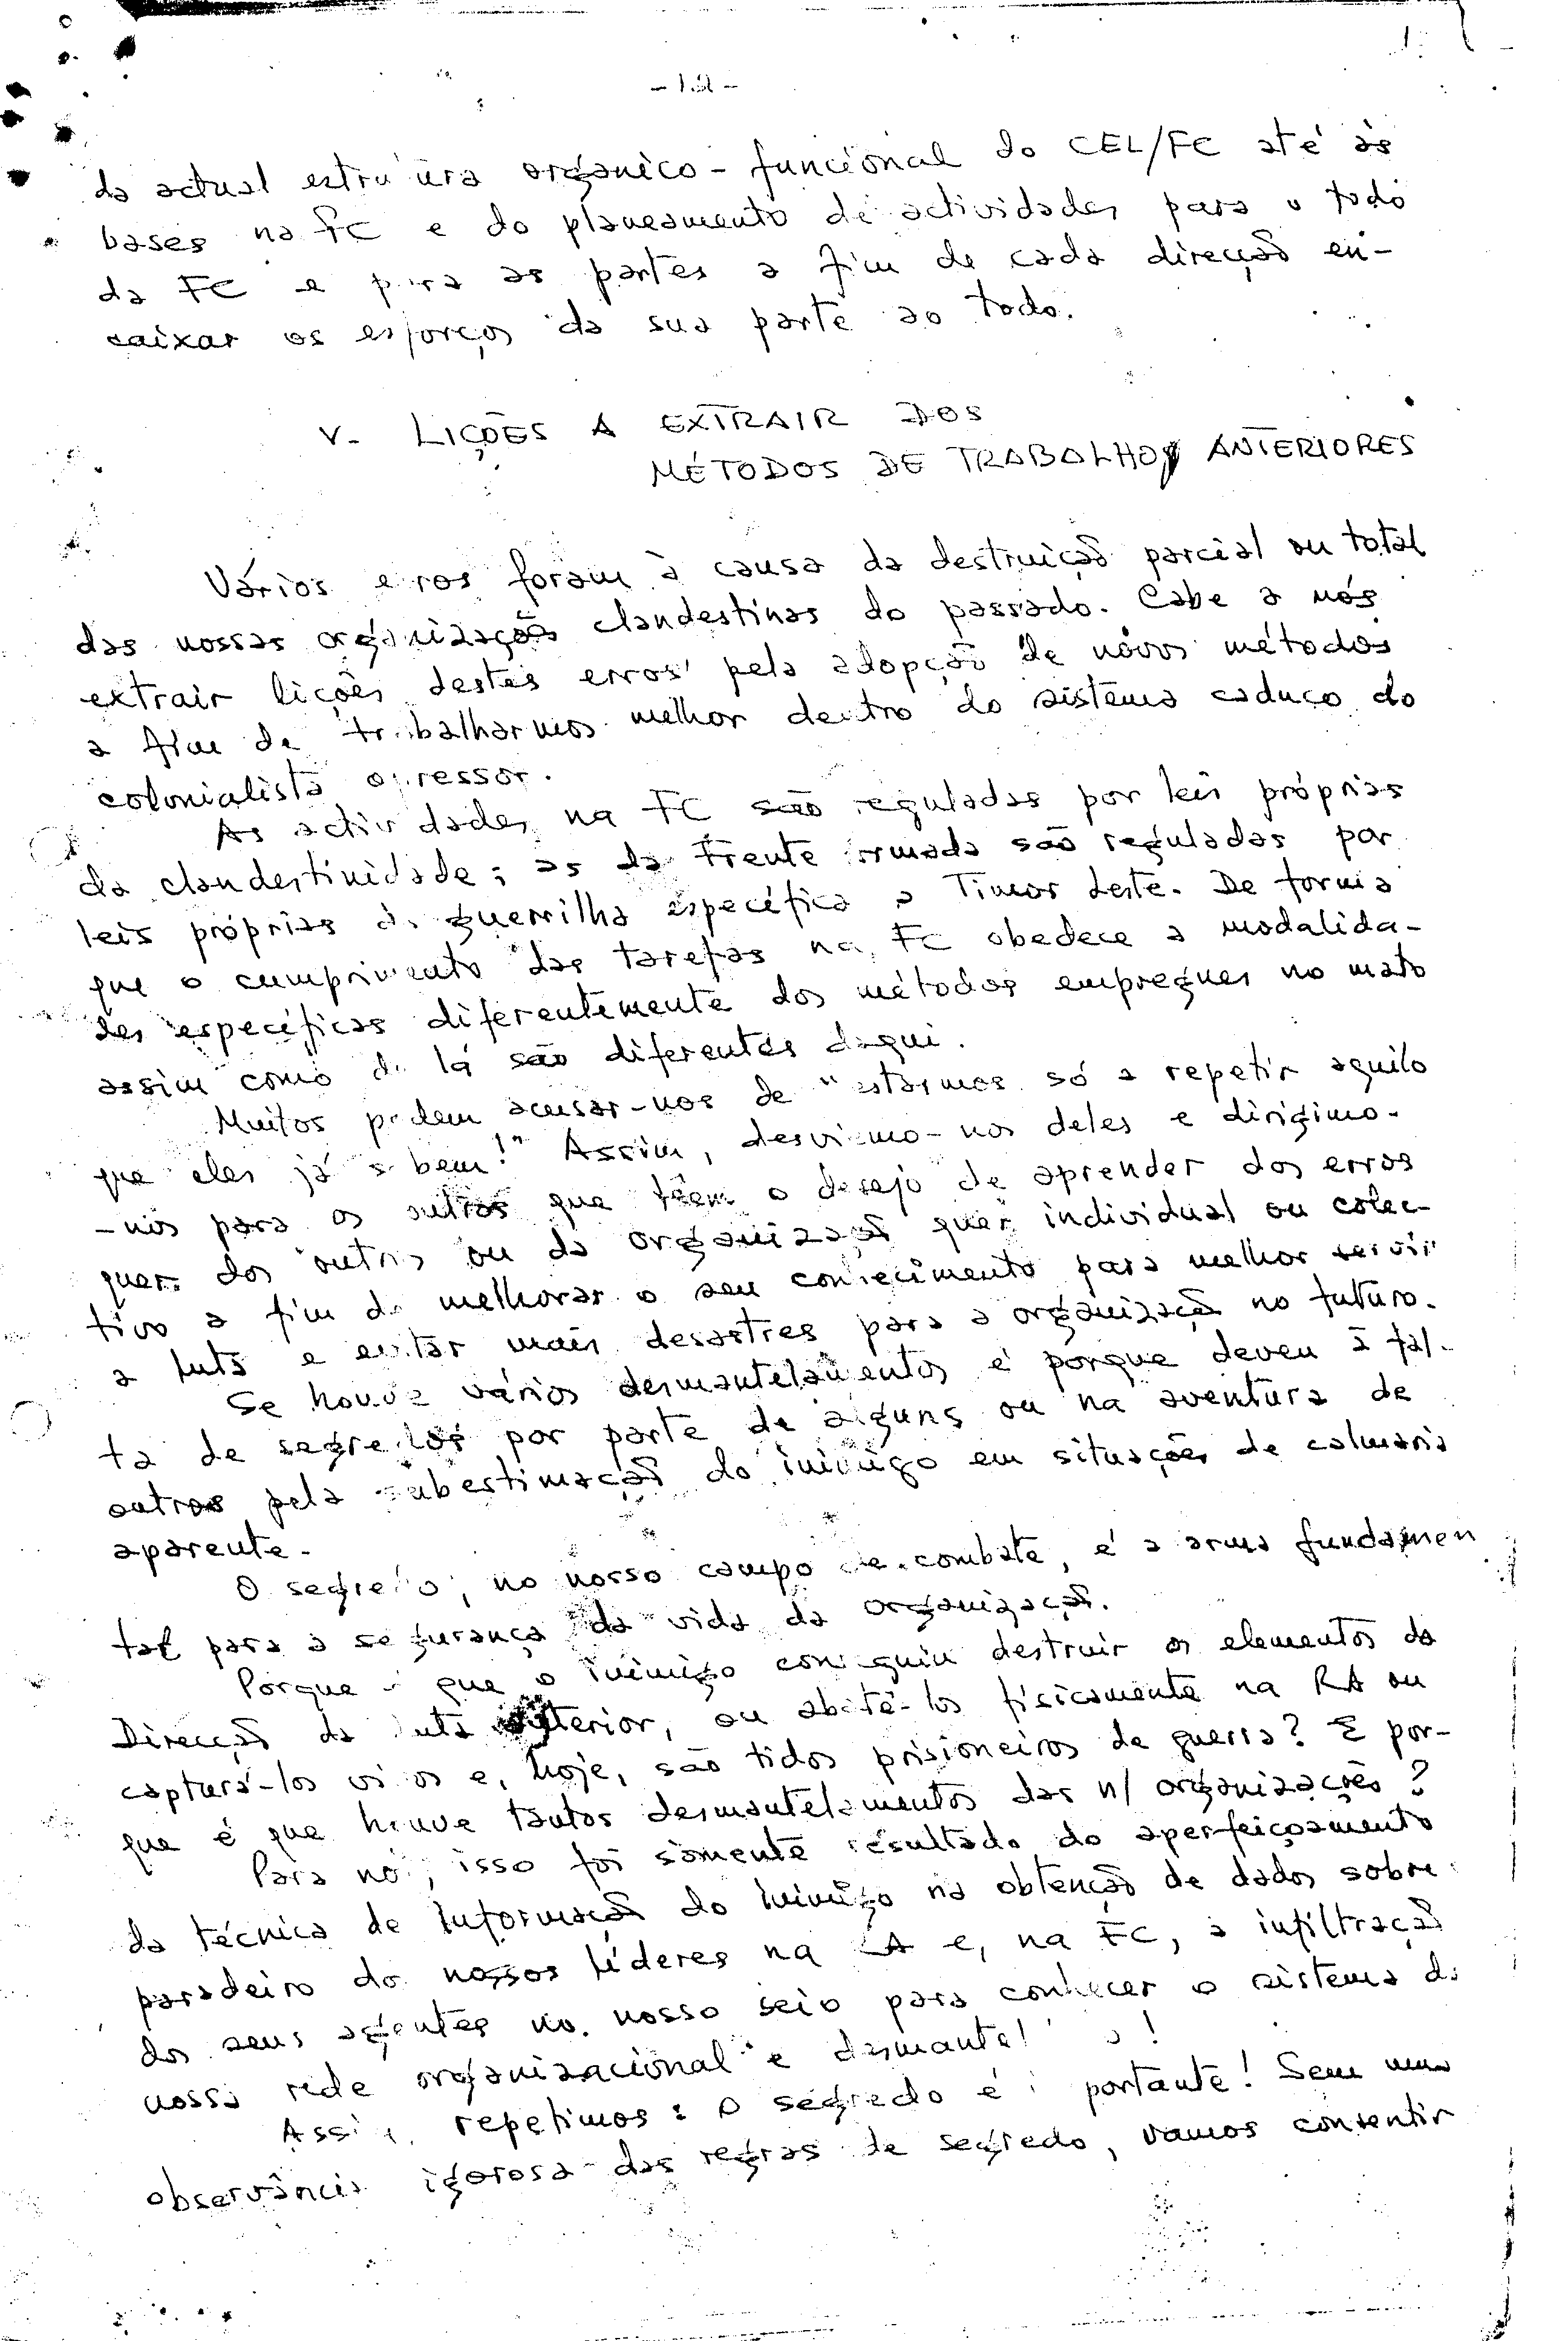 - 12 -
da actual estrutura orgânico-funcional do CEL/FC até às
bases na FC e do planeamento de actividades para o todo
da FC e para as partes a fim de cada direcção en-
caixar os esforços da sua parte ao todo.
V- LIÇÕES A EXTRAIR DOS
MÉTODOS DE TRABALHO ANTERIORES
Vários erros foram a causa da destruição parcial ou total
das nossas organizações clandestinas do passado. Cabe a nós
extrair lições destes erros pela adopção de novos métodos
a fim de trabalharmos melhor dentro do sistema caduco do
colonialista opressor.
As actividades na FC são reguladas por leis próprias
da clandestinidade; as da Frente Armada são reguladas por
leis próprias da guerrilha específica a Timor Leste. De forma
que o cumprimento das tarefas na FC obedece a modalida-
des específicas diferentemente dos métodos empregues no mato
assim como de lá são diferentes daqui.
Muitos podem acusar-nos de "estarmos só a repetir aquilo
que eles já sabem!" Assim, desviamo-nos deles e dirigimo-
-nos para os outros que têem o desejo de aprender dos erros
quer dos outros ou da organização quer individual ou colec-
tivo a fim de melhorar o seu conhecimento para melhor servir
a luta e evitar mais desastres para a organização no futuro.
Se houve vários desmantelamentos é porque deveu à fal-
ta de segredos por parte de alguns ou na aventura de
outros pela subestimação do inimigo em situações de calmaria
aparente.
O segredo, no nosso campo de combate, é a arma fundamen
tal para a segurança da vida da organização.
Porque é que o inimigo conseguiu destruir os elementos da
Direcção da luta anterior, ou abatê-los fisicamente na RA ou
capturá-los vivos e, hoje, são tidos prisioneiros de guerra? E por-
que é que houve tantos desmantelamentos das n/ organizações?
Para nós, isso foi sòmente resultado do aperfeiçoamento
da técnica de Informação do inimigo na obtenção de dados sobre
paradeiro dos nossos líderes na FA e, na FC, a infiltração
dos seus agentes no nosso seio para conhecer o sistema da
nossa rede organizacional e desmantelá-lo!
Assim, repetimos: O segredo é importante! Sem uma
observância rigorosa das regras de segredo, vamos consentir